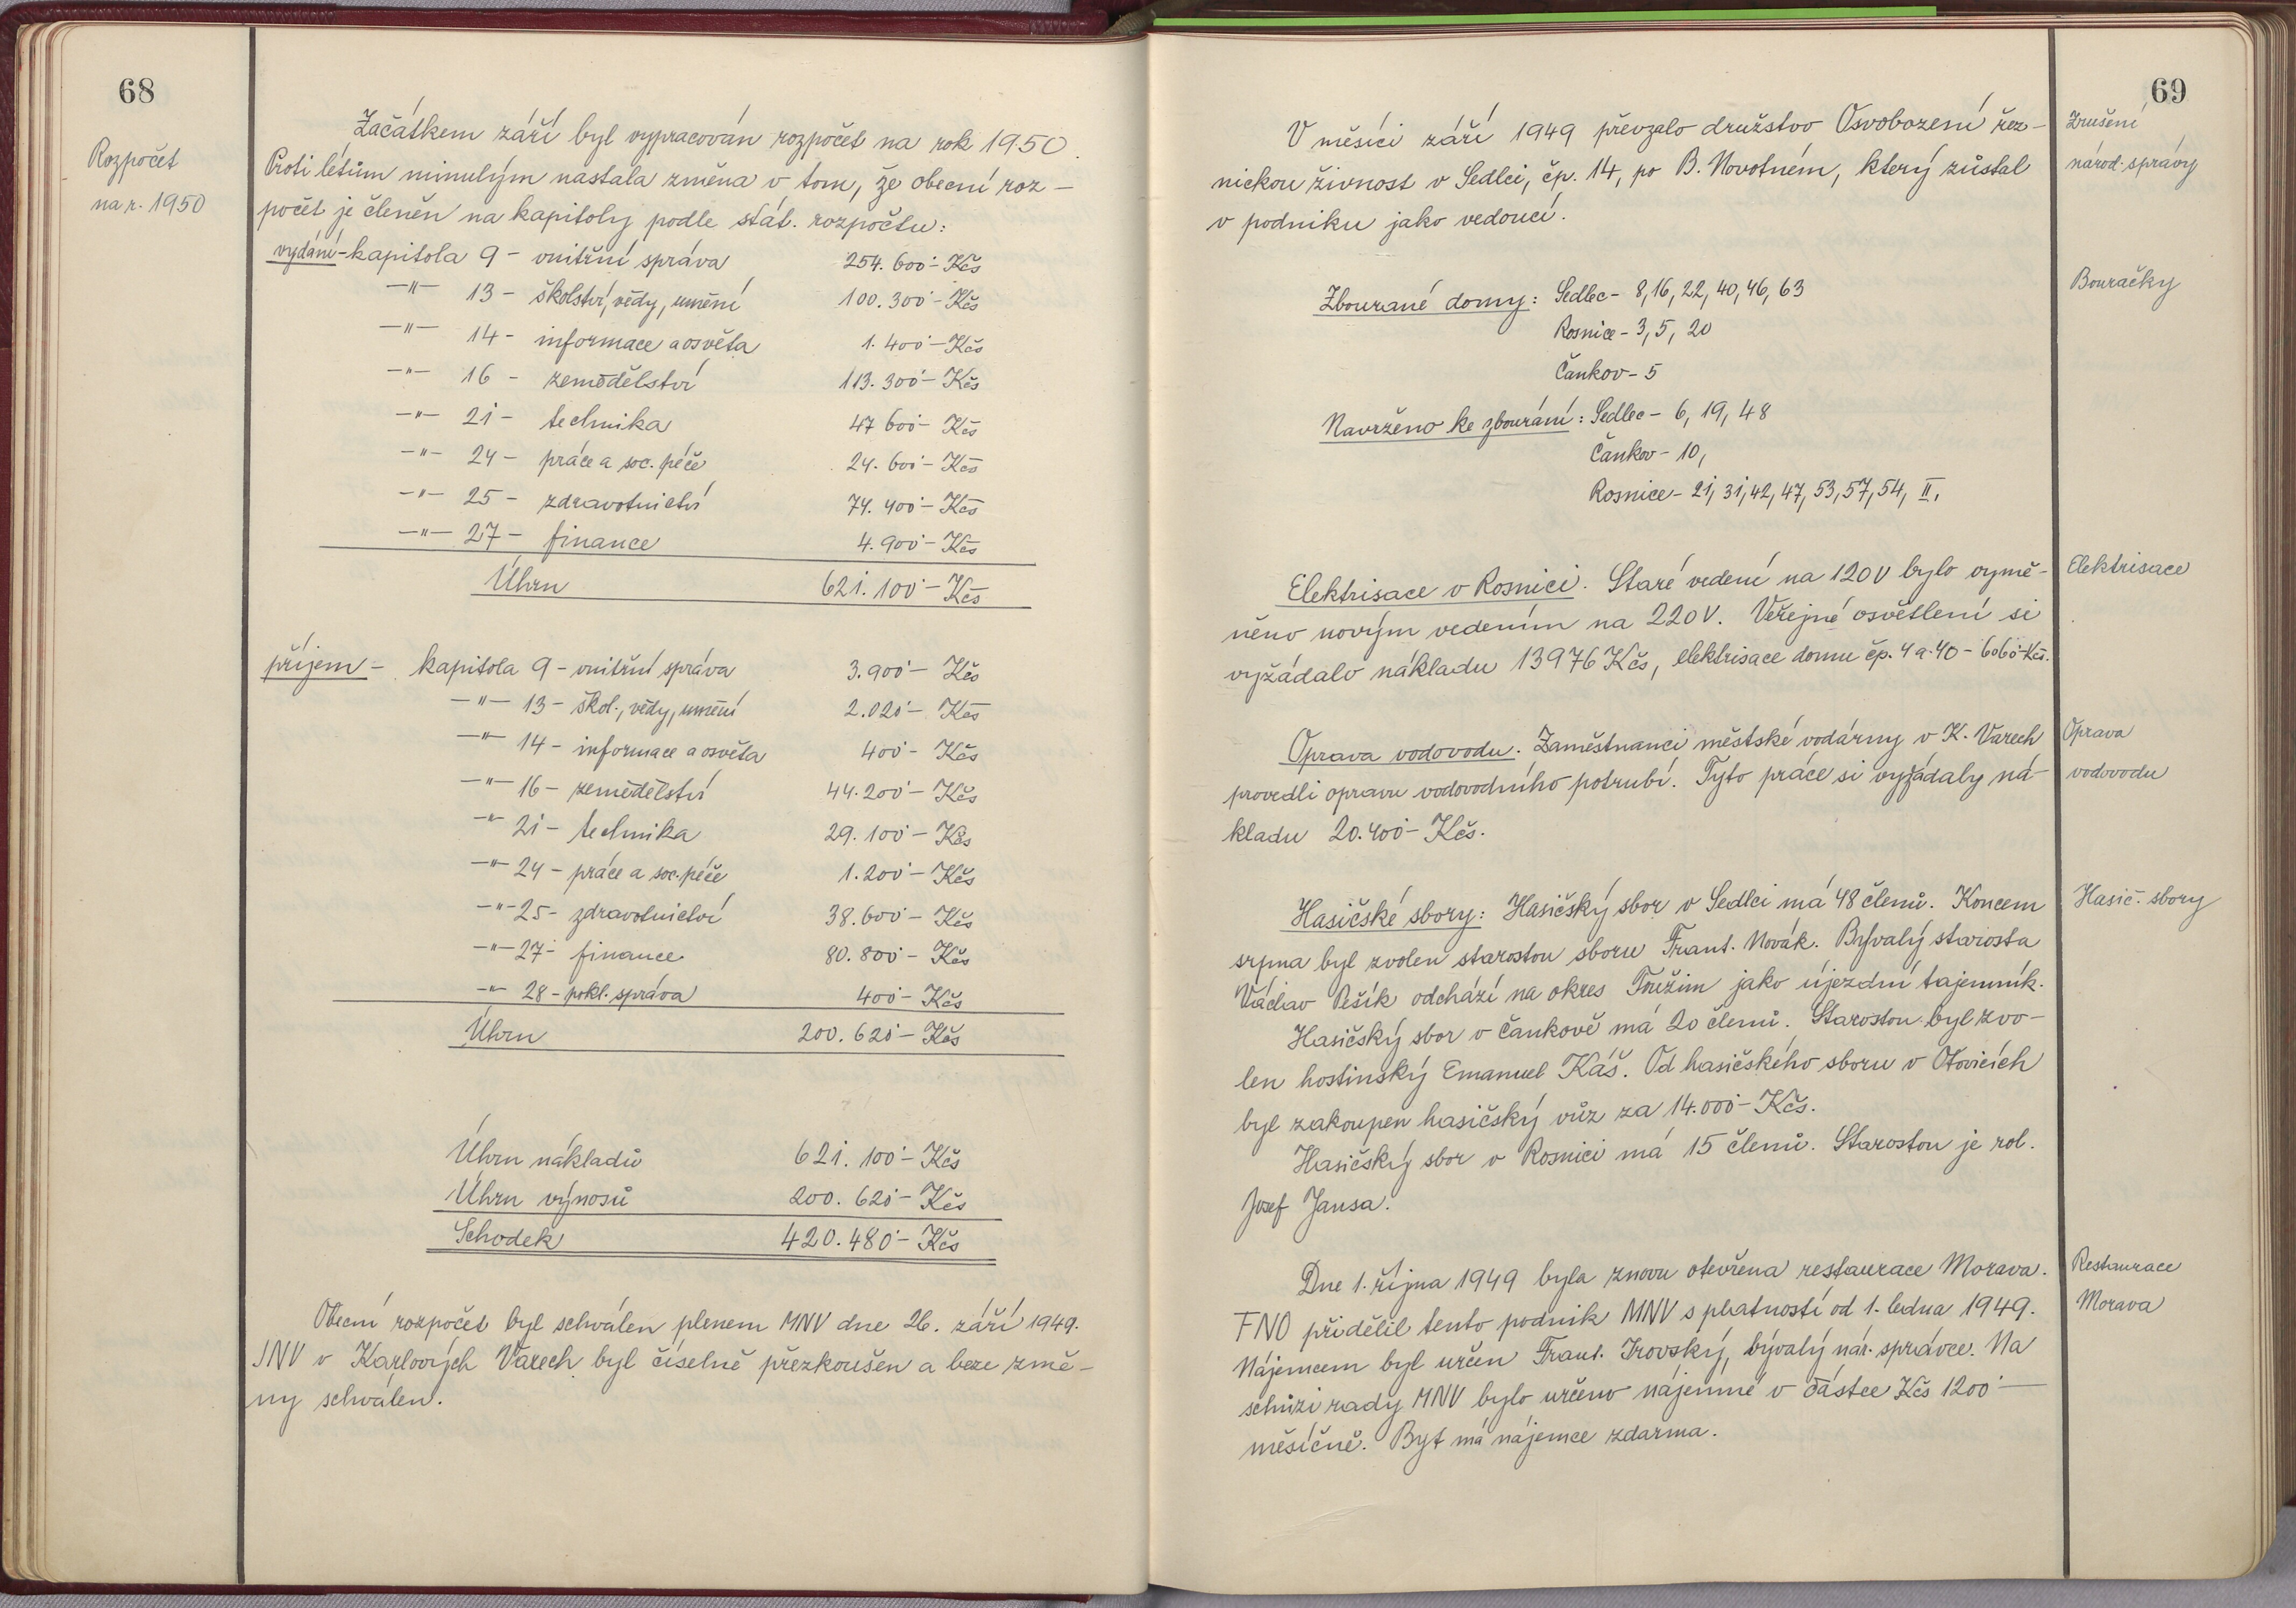 68
Rozpočet
na r. 1950
Začátkem září byl vypracován rozpočet na rok 1950.
Proti létům minulým nastala změna v tom, že obecní roz-
počet je členěn na kapitoly podle stát. rozpočtu:
vydání - kapitola 9 - vnitřní správa 254.600·- Kčs
-"- 13 - školství, vědy, umění 100.300·- Kčs
-"- 14 - informace a osvěta 1.400·- Kčs
-"- 16 - zemědělství 113.300·- Kčs
-"- 21 - technika 47 600·- Kčs
-"- 24 - práce a soc. péče 24.600·- Kčs
-"- 25 - zdravotnictví 74.400·- Kčs
-"- 27 - finance 4.900·- Kčs
Úhrn 621.100·- Kčs
příjem - kapitola 9 - vnitřní správa 3.900·- Kčs
-"- 13 - škol., vědy, umění 2.020·- Kčs
-"- 14 - informace a osvěta 400·- Kčs
-"- 16 - zemědělství 44.200·- Kčs
-"- 21 - technika 29.100·- Kčs
-"- 24 - práce a soc. péče 1.200·- Kčs
-"- 25 - zdravotnictví 38.600·- Kčs
-"- 27 - finance 80.800·- Kčs
-"- 28 - pokl. správa 400·- Kčs
Úhrn 200.620·- Kčs
Úhrn nákladů 621.100·- Kčs
Úhrn výnosů 200.620·- Kčs
Schodek 420.480·- Kčs
Obecní rozpočet byl schválen plenem MNV dne 26. září 1949.
JNV v Karlových Varech byl číselně přezkoušen a beze změ-
ny schválen.
69
V měsíci září 1949 převzalo družstvo Osvobození řez-
nickou živnost v Sedlci, čp. 14, po B. Novotném, který zůstal
v podniku jako vedoucí.
Zrušení
národ. správy
Zbourané domy: Sedlec - 8, 16, 22, 40, 46, 63
Rosnice - 3, 5, 20
Čankov - 5
Bouračky
Navrženo ke zbourání: Sedlec - 6, 19, 48
Čankov - 10,
Rosnice - 21, 31, 42, 47, 53, 57, 54, II.
Elektrisace v Rosnici. Staré vedení na 120 V bylo vymě-
něno novým vedením na 220 V. Veřejné osvětlení si
vyžádalo nákladu 13976 Kčs, elektrisace domu čp. 4 a 40 - 6060·- Kčs.
Elektrisace
Oprava vodovodu. Zaměstnanci městské vodárny v K. Varech
provedli opravu vodovodního potrubí. Tyto práce si vyžádaly ná-
kladu 20.400·- Kčs.
Oprava
vodovodu
Hasičské sbory: Hasičský sbor v Sedlci má 48 členů. Koncem
srpna byl zvolen starostou sboru Frant. Novák. Bývalý starosta
Václav Pešík odchází na okres Toužim jako újezdní tajemník.
Hasičský sbor v Čankově má 20 členů. Starostou byl zvo-
len hostinský Emanuel Káš. Od hasičského sboru v Otovicích
byl zakoupen hasičský vůz za 14.000·- Kčs.
Hasičský sbor v Rosnici má 15 členů. Starostou je rol.
Josef Jansa.
Hasič. sbory
Dne 1. října 1949 byla znovu otevřena restaurace Morava.
FNO přidělil tento podnik MNV s platností od 1. ledna 1949.
Nájemcem byl určen Frant. Irovský, bývalý nár. správce. Na
schůzi rady MNV bylo určeno nájemné v částce Kčs 1200·-
měsíčně. Byt má nájemce zdarma.
Restaurace
Morava